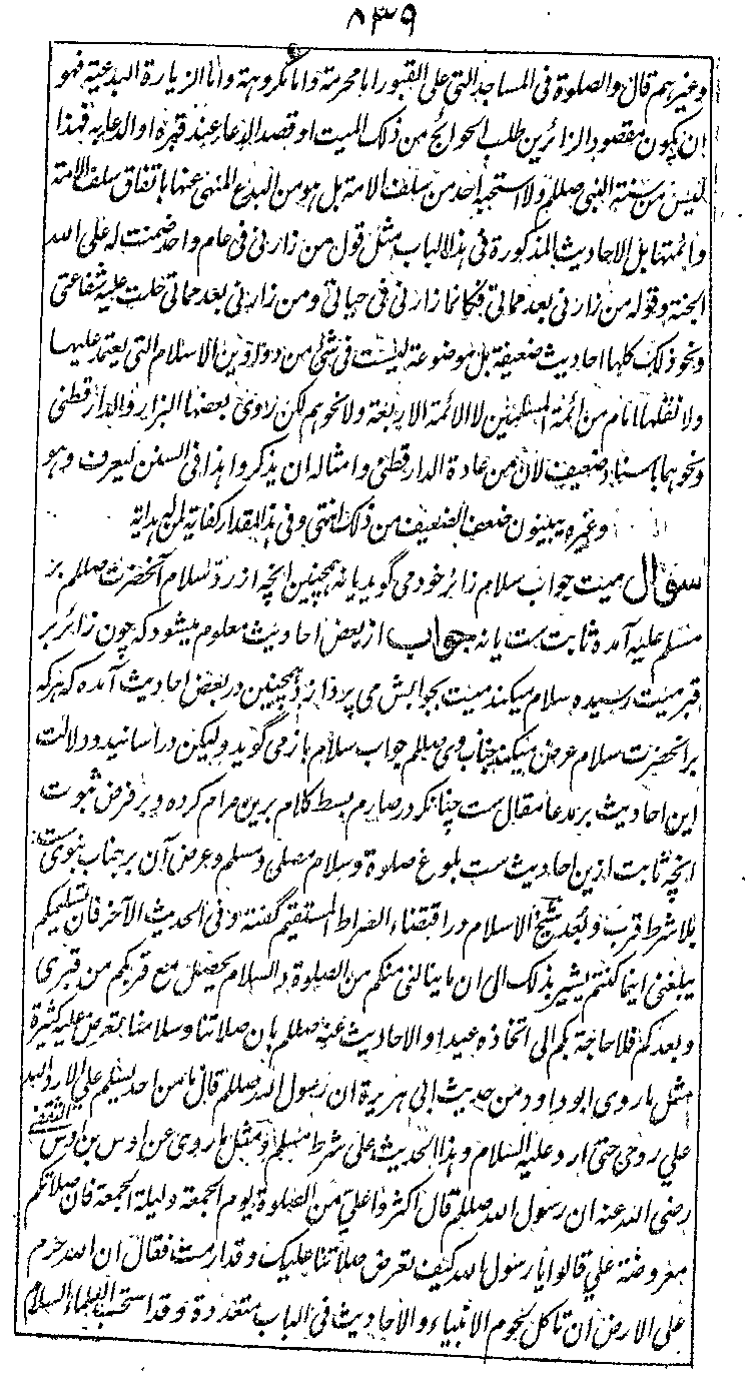 ۸۳۹
وغيرهم قال والصلوة فى المساجد التى على القبور اما محرمة واما مكروهة واما الزيارة البدعية فهو
ان يكون مقصود الزائرين طلب الحوائج من ذلك الميت او قصد الدعاء عند قبره او الدعا به فهذا
ليس من سنة النبى صللم ولا استحبه احد من سلف الامة بل هو من البدع المنهى عنها باتفاق سلف الامة
والمتقابل الاحاديث المذكورة فى هذا الباب مثل قول من زارنى فى عام واحد ضمنت له على الله
الجنة وقوله من زارنى بعد مماتى فكانما زارنى فى حياتى ومن زارنى بعد مماتى حلت عليه شفاعتى
ونحو ذلك كلها احاديث ضعيفة بل موضوعة ليست فى شئ من دواوين الاسلام التى يعتمد عليها
ولا نقلها امام من ائمة المسلمين لا الائمة الاربعة ولا نحوهم لكن روى بعضها البزار والدارقطنى
ونحوهما باسناد ضعيف لان من عادة الدارقطنى وامثاله ان يذكروا هذا فى السنن ليعرف وهو
وغيره يبينون ضعف الضعيف من ذلك انتهى وفى هذا المقدار كفاية لمن له هداية
سؤال ميت جواب سلام زائر خود مى گويد يا نه همچنين انچه از رد سلام آنحضرت صللم بر
مسلم عليه آمده ثابت ست يا نه جواب از بعض احاديث معلوم ميشود كه چون زائر بر
قبر ميت رسيده سلام ميكند ميت بجوابش مى پردازد و همچنين در بعض احاديث آمده كه هر كه
بر آنحضرت سلام عرض ميكند جناب وى صللم جواب سلام باز مى گويد وليكن در اسانيد و دلالت
اين احاديث بر مدعا مقال ست چنانكه در صارم بسط كلام برين مرام كرده و بر فرض ثبوت
انچه ثابت ازين احاديث ست بلوغ صلوة وسلام مصلى ومسلم وعرض آن بر جناب نبوى ست
بلا شرط قرب وبعد شيخ الاسلام در اقتضاء الصراط المستقيم گفته وفى الحديث الآخر فان تسليمكم
يبلغنى اينما كنتم يشير بذلك الى ان ما ينالنى منكم من الصلوة والسلام يحصل مع قربكم من قبرى
وبعدكم فلا حاجة بكم الى اتخاذه عيدا والاحاديث عنه صللم بان صلاتنا وسلامنا تعرض عليه كثيرة
مثل ما روى ابو داود من حديث ابى هريرة ان رسول الله صللم قال ما من احد يسلم على الا رد الله
على روحى حتى ارد عليه السلام وهذا الحديث على شرط مسلم ومثل ما روى عن اوس بن اوس الثقفى
رضى الله عنه ان رسول الله صللم قال اكثروا على من الصلوة يوم الجمعة وليلة الجمعة فان صلاتكم
معروضة على قالوا يا رسول الله كيف تعرض صلاتنا عليك وقد ارمت فقال ان الله حرم
على الارض ان تاكل لحوم الانبياء والاحاديث فى الباب متعددة وقد استحب العلماء السلام